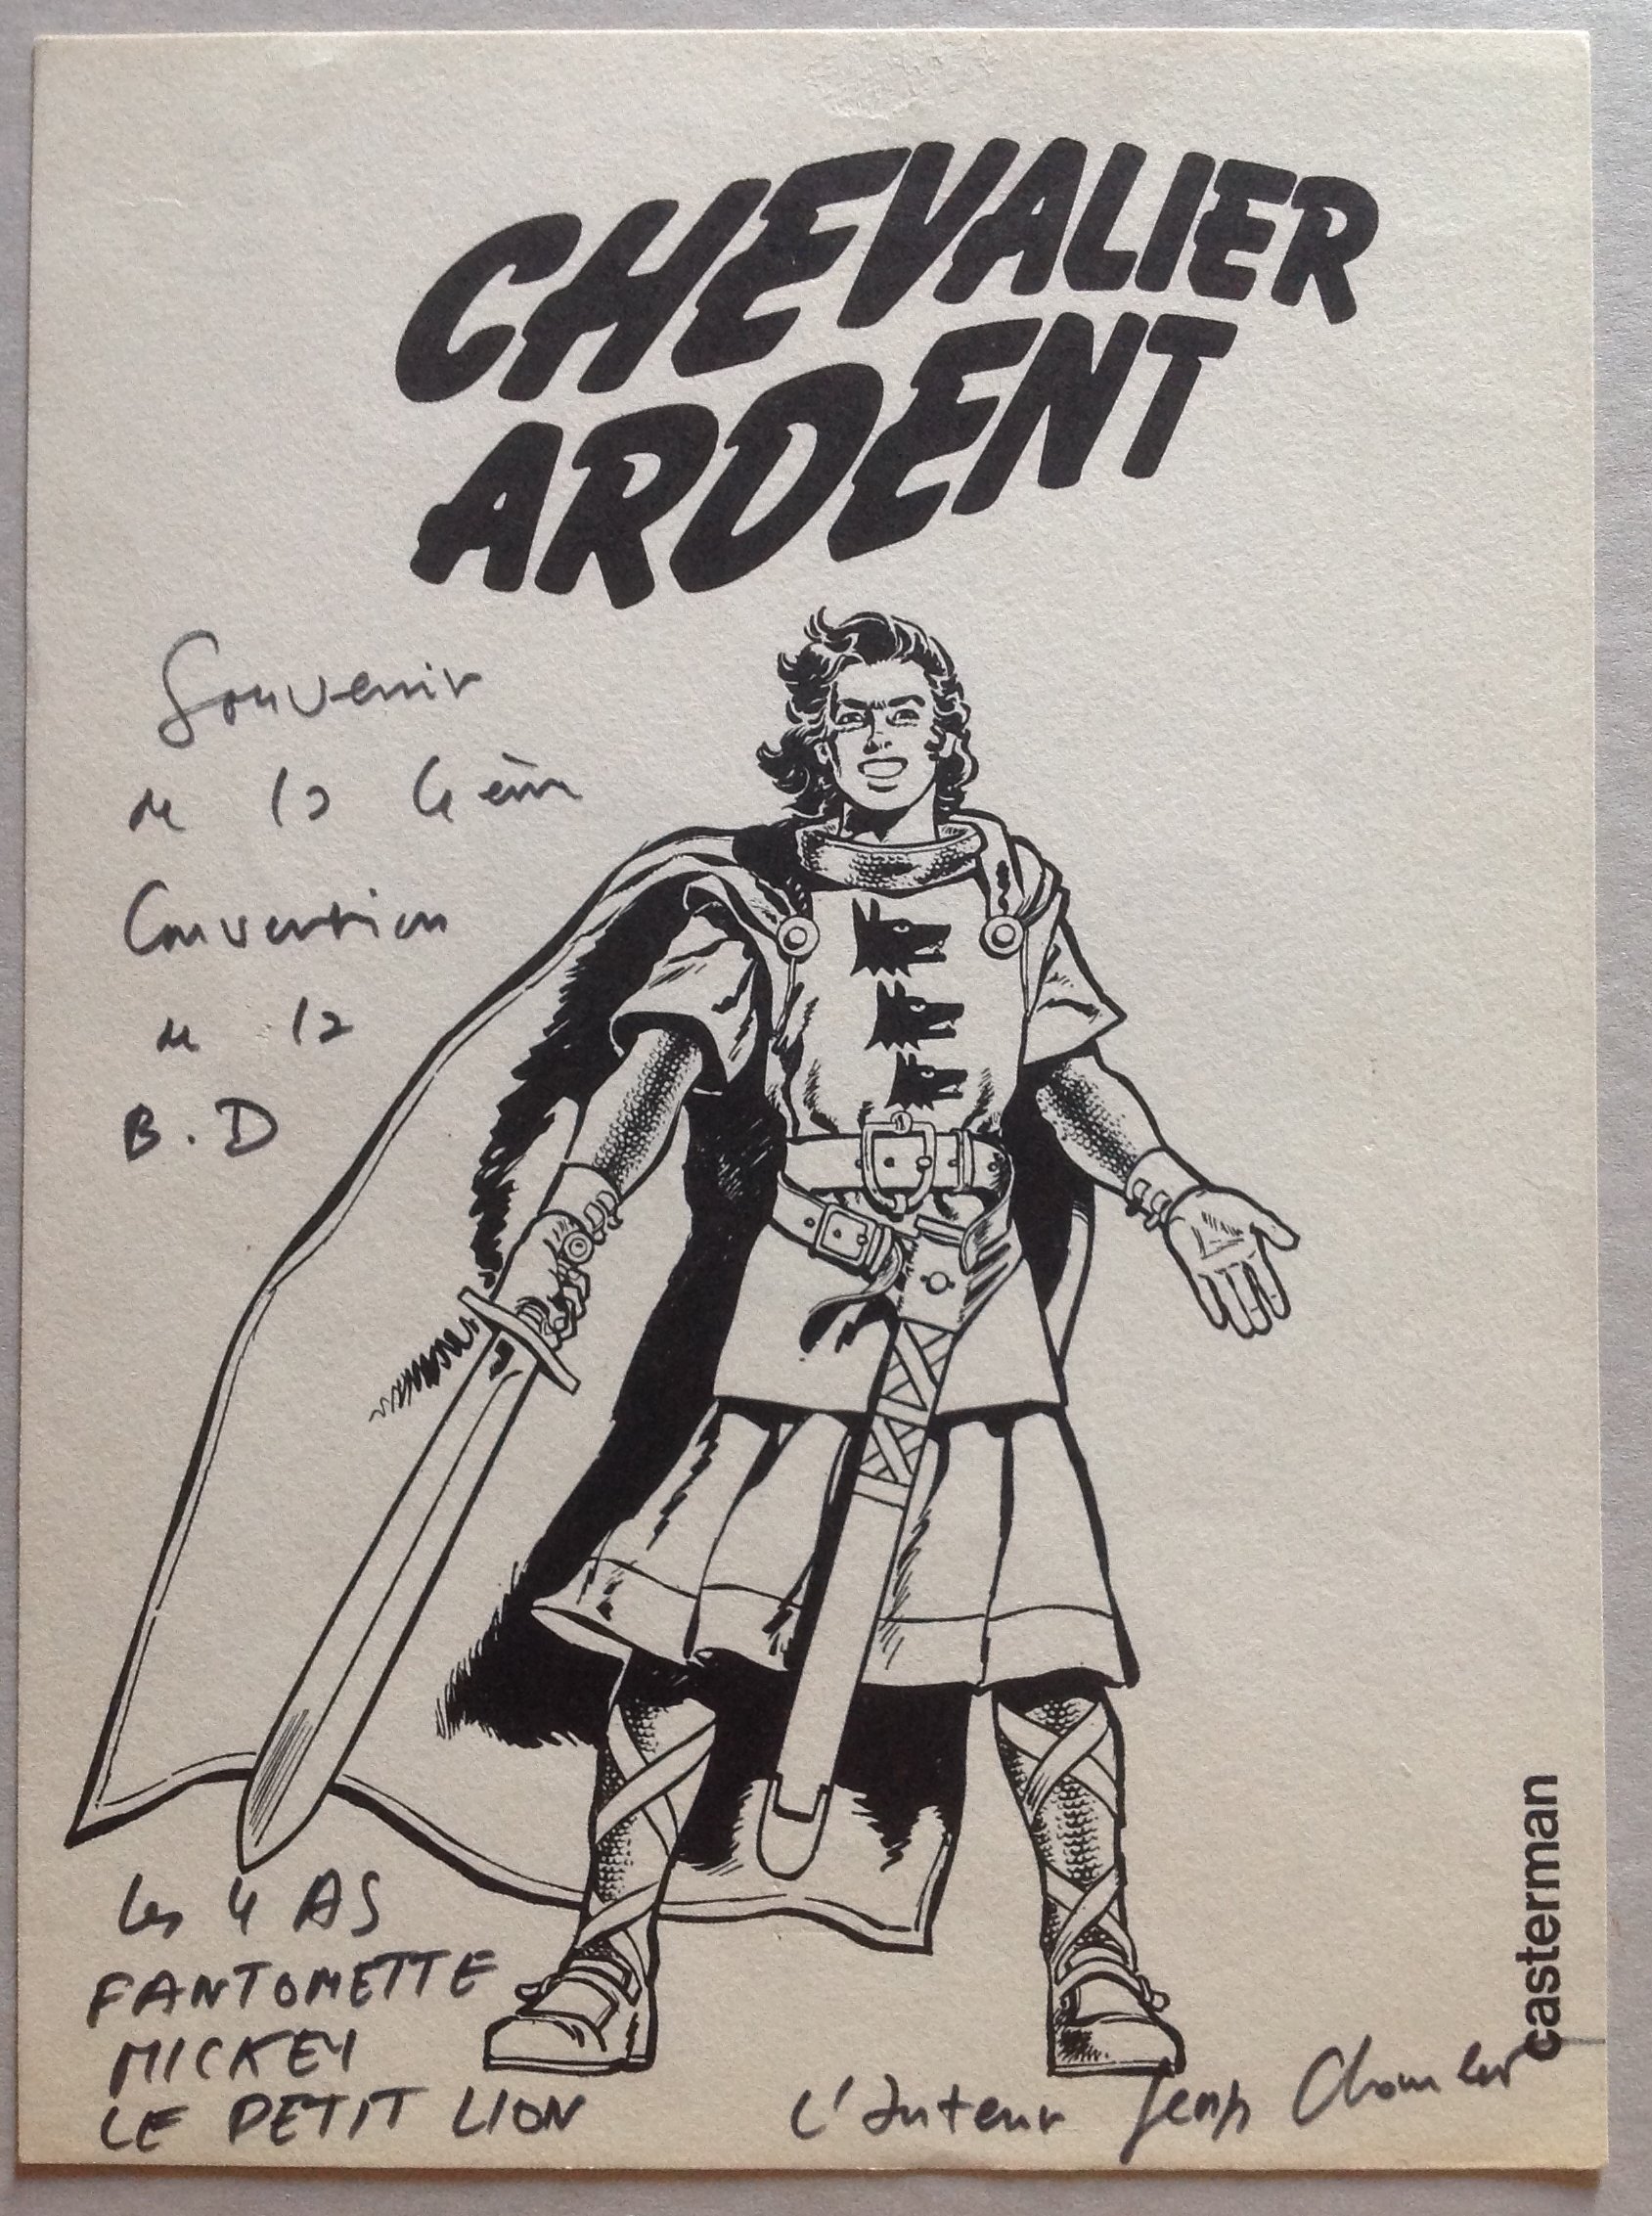 CHEVALIER
ARDENT
Souvenir
de la 4ème
Convention
de la
B.D
Les 4 AS
FANTOMETTE
MICKEY
LE PETIT LION
L'auteur Georges Chaulet
casterman